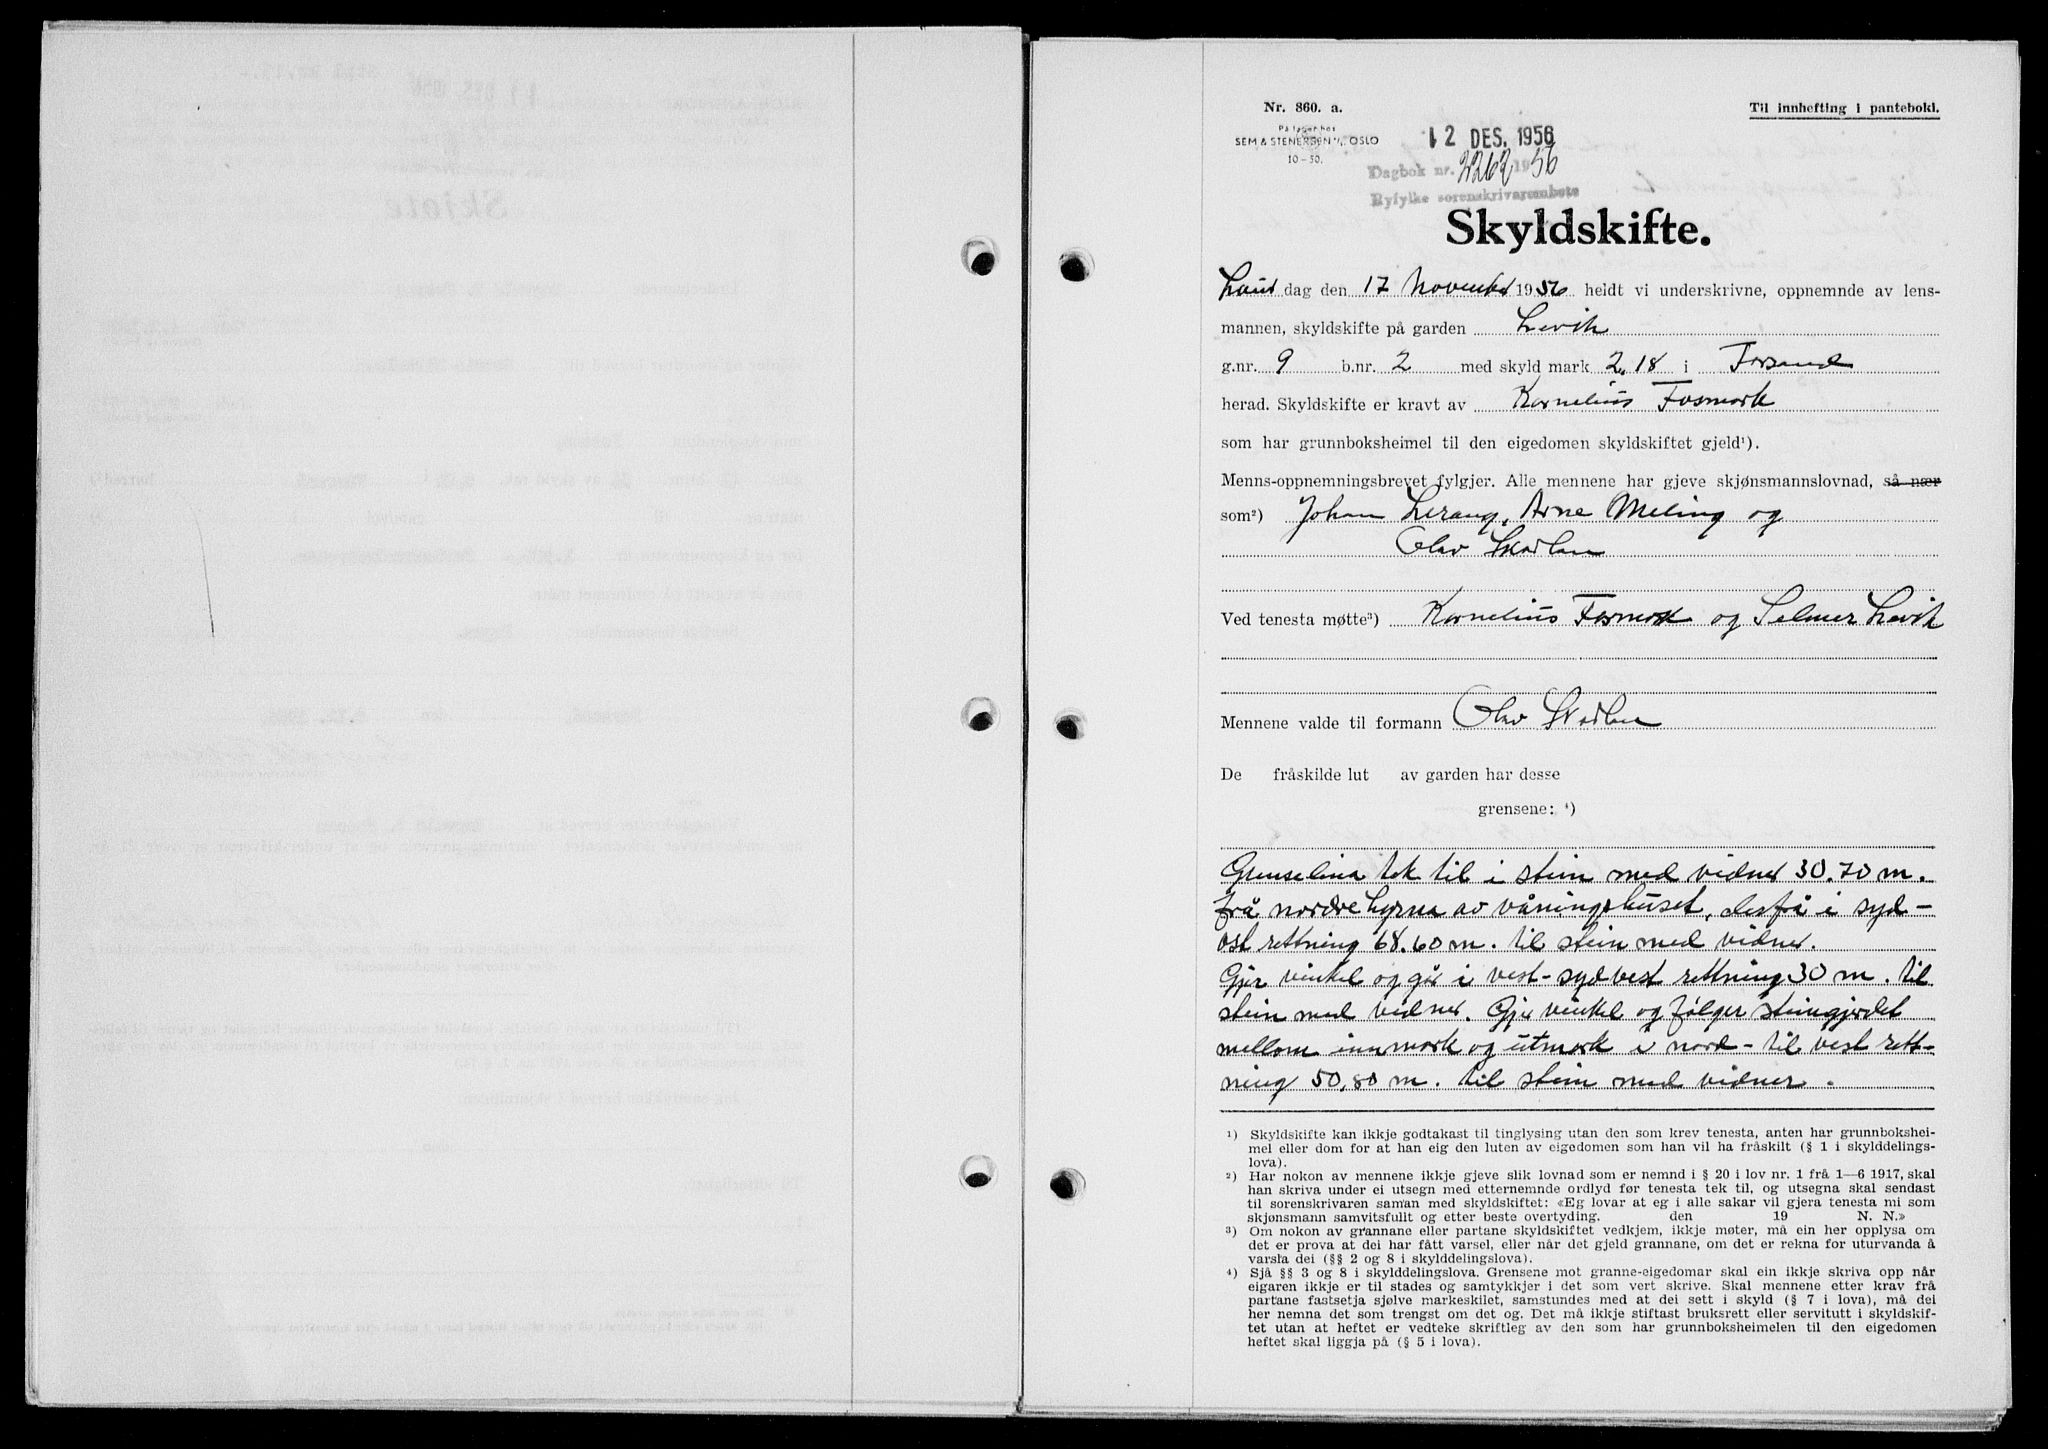 Nr. 860. a.
Til innhefting i pantebok.
På lager hos
SEM & STENERSEN A/S OSLO
10-50.
12 DES. 1956
Dagbok nr. 2262 1956
Ryfylke sorenskrivarembete
Skyldskifte.
Laur dag den 17 November 1956 heldt vi underskrivne, oppnemnde av lens-
mannen, skyldskifte på garden Levik
g.nr. 9 b.nr. 2 med skyld mark 2,18 i Forsand
herad. Skyldskifte er kravt av Kornelius Fosmark
som har grunnboksheimel til den eigedomen skyldskiftet gjeld¹).
Menns-oppnemningsbrevet fylgjer. Alle mennene har gjeve skjønsmannslovnad, så nær
som²) Johan Lerang, Arne Meling og
Olav
Ved tenesta møtte³) Kornelius Fosmark og Selmer Levik
Mennene valde til formann Olav
De fråskilde lut av garden har desse
grensene: ⁴)
Grenselina tek til i stein med vidner 30.70 m.
frå nordre hyrna av våningshuset, derfrå i syd-
ost rettning 68.60 m. til stein med vidner.
Gjer vinkel og går i vest-sydvest rettning 30 m. til
stein med vidner. Gjer vinkel og følger steingjerdet
mellom innmark og utmark i nord-til vest rett-
ning 50,80 m. til stein med vidner.
¹) Skyldskifte kan ikkje godtakast til tinglysing utan den som krev tenesta, anten har grunnbokshei-
mel eller dom for at han eig den luten av eigedomen som han vil ha fråskilt (§ 1 i skylddelings-
lova).
²) Har nokon av mennene ikkje gjeve slik lovnad som er nemnd i § 20 i lov nr. 1 frå 1—6 1917, skal
han skriva under ei utsegn med etternemnde ordlyd før tenesta tek til, og utsegna skal sendast
til sorenskrivaren saman med skyldskiftet: «Eg lovar at eg i alle sakar vil gjera tenesta mi som
skjønsmann samvitsfullt og etter beste overtyding. den 19 N. N.»
³) Om nokon av grannane eller partane skyldskiftet vedkjem, ikkje møter, må ein her opplysa om
det er prova at dei har fått varsel, eller når det gjeld grannane, om det er rekna for uturvanda å
varsla dei (§§ 2 og 8 i skylddelingslova).
⁴) Sjå §§ 3 og 8 i skylddelingslova. Grensene mot granne-eigedomar skal ein ikkje skriva opp når
eigaren ikkje er til stades og samtykkjer i det som vert skrive. Skal mennene etter krav frå
partane fastsetja sjølve markeskilet, samstundes med at dei sett i skyld (§ 7 i lova), må dei
her nemna det som trengst om det og. Det må ikkje stiftast bruksrett eller servitutt i skyldskif-
tet utan at heftet er vedteke skriftleg av den som har grunnboksheimelen til den eigedomen
heftet skal liggja på (§ 5 i lova).